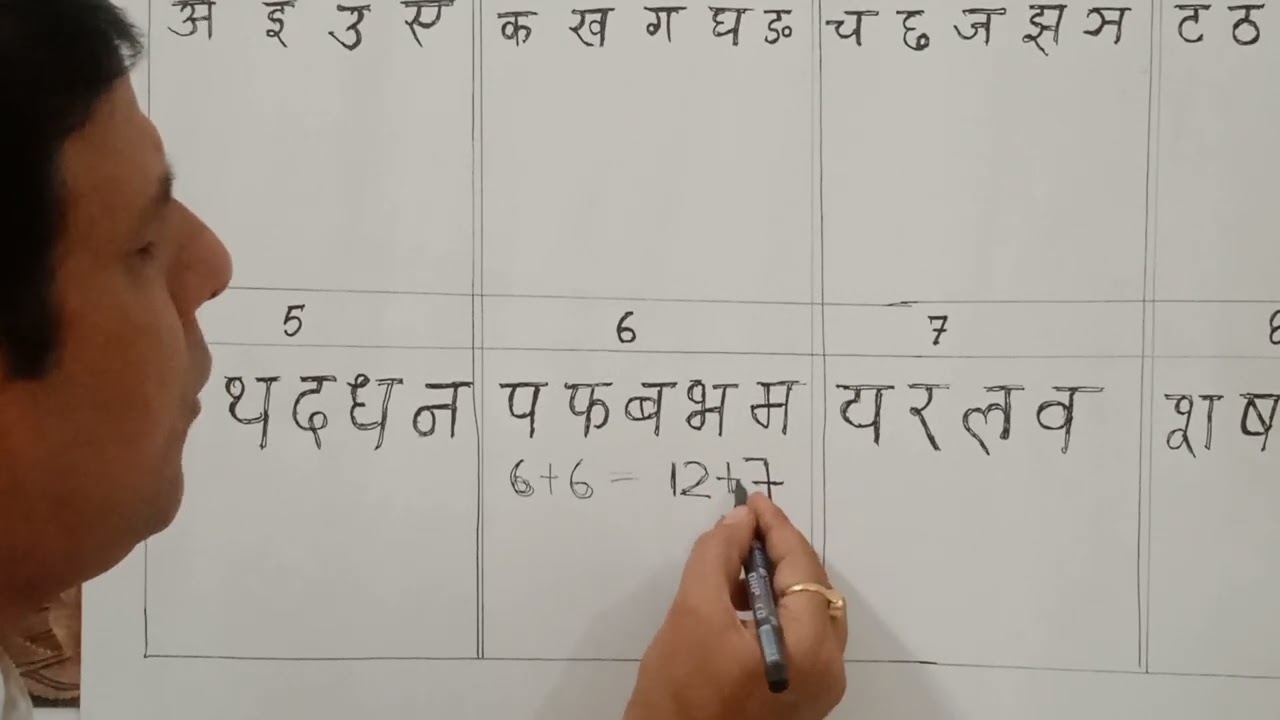 अ इ उ ए क ख ग घ ङ च छ ज झ ञ ट ठ
5 6 7 8
थ द ध न प फ ब भ म य र ल व श ष
6+6 = 12+7